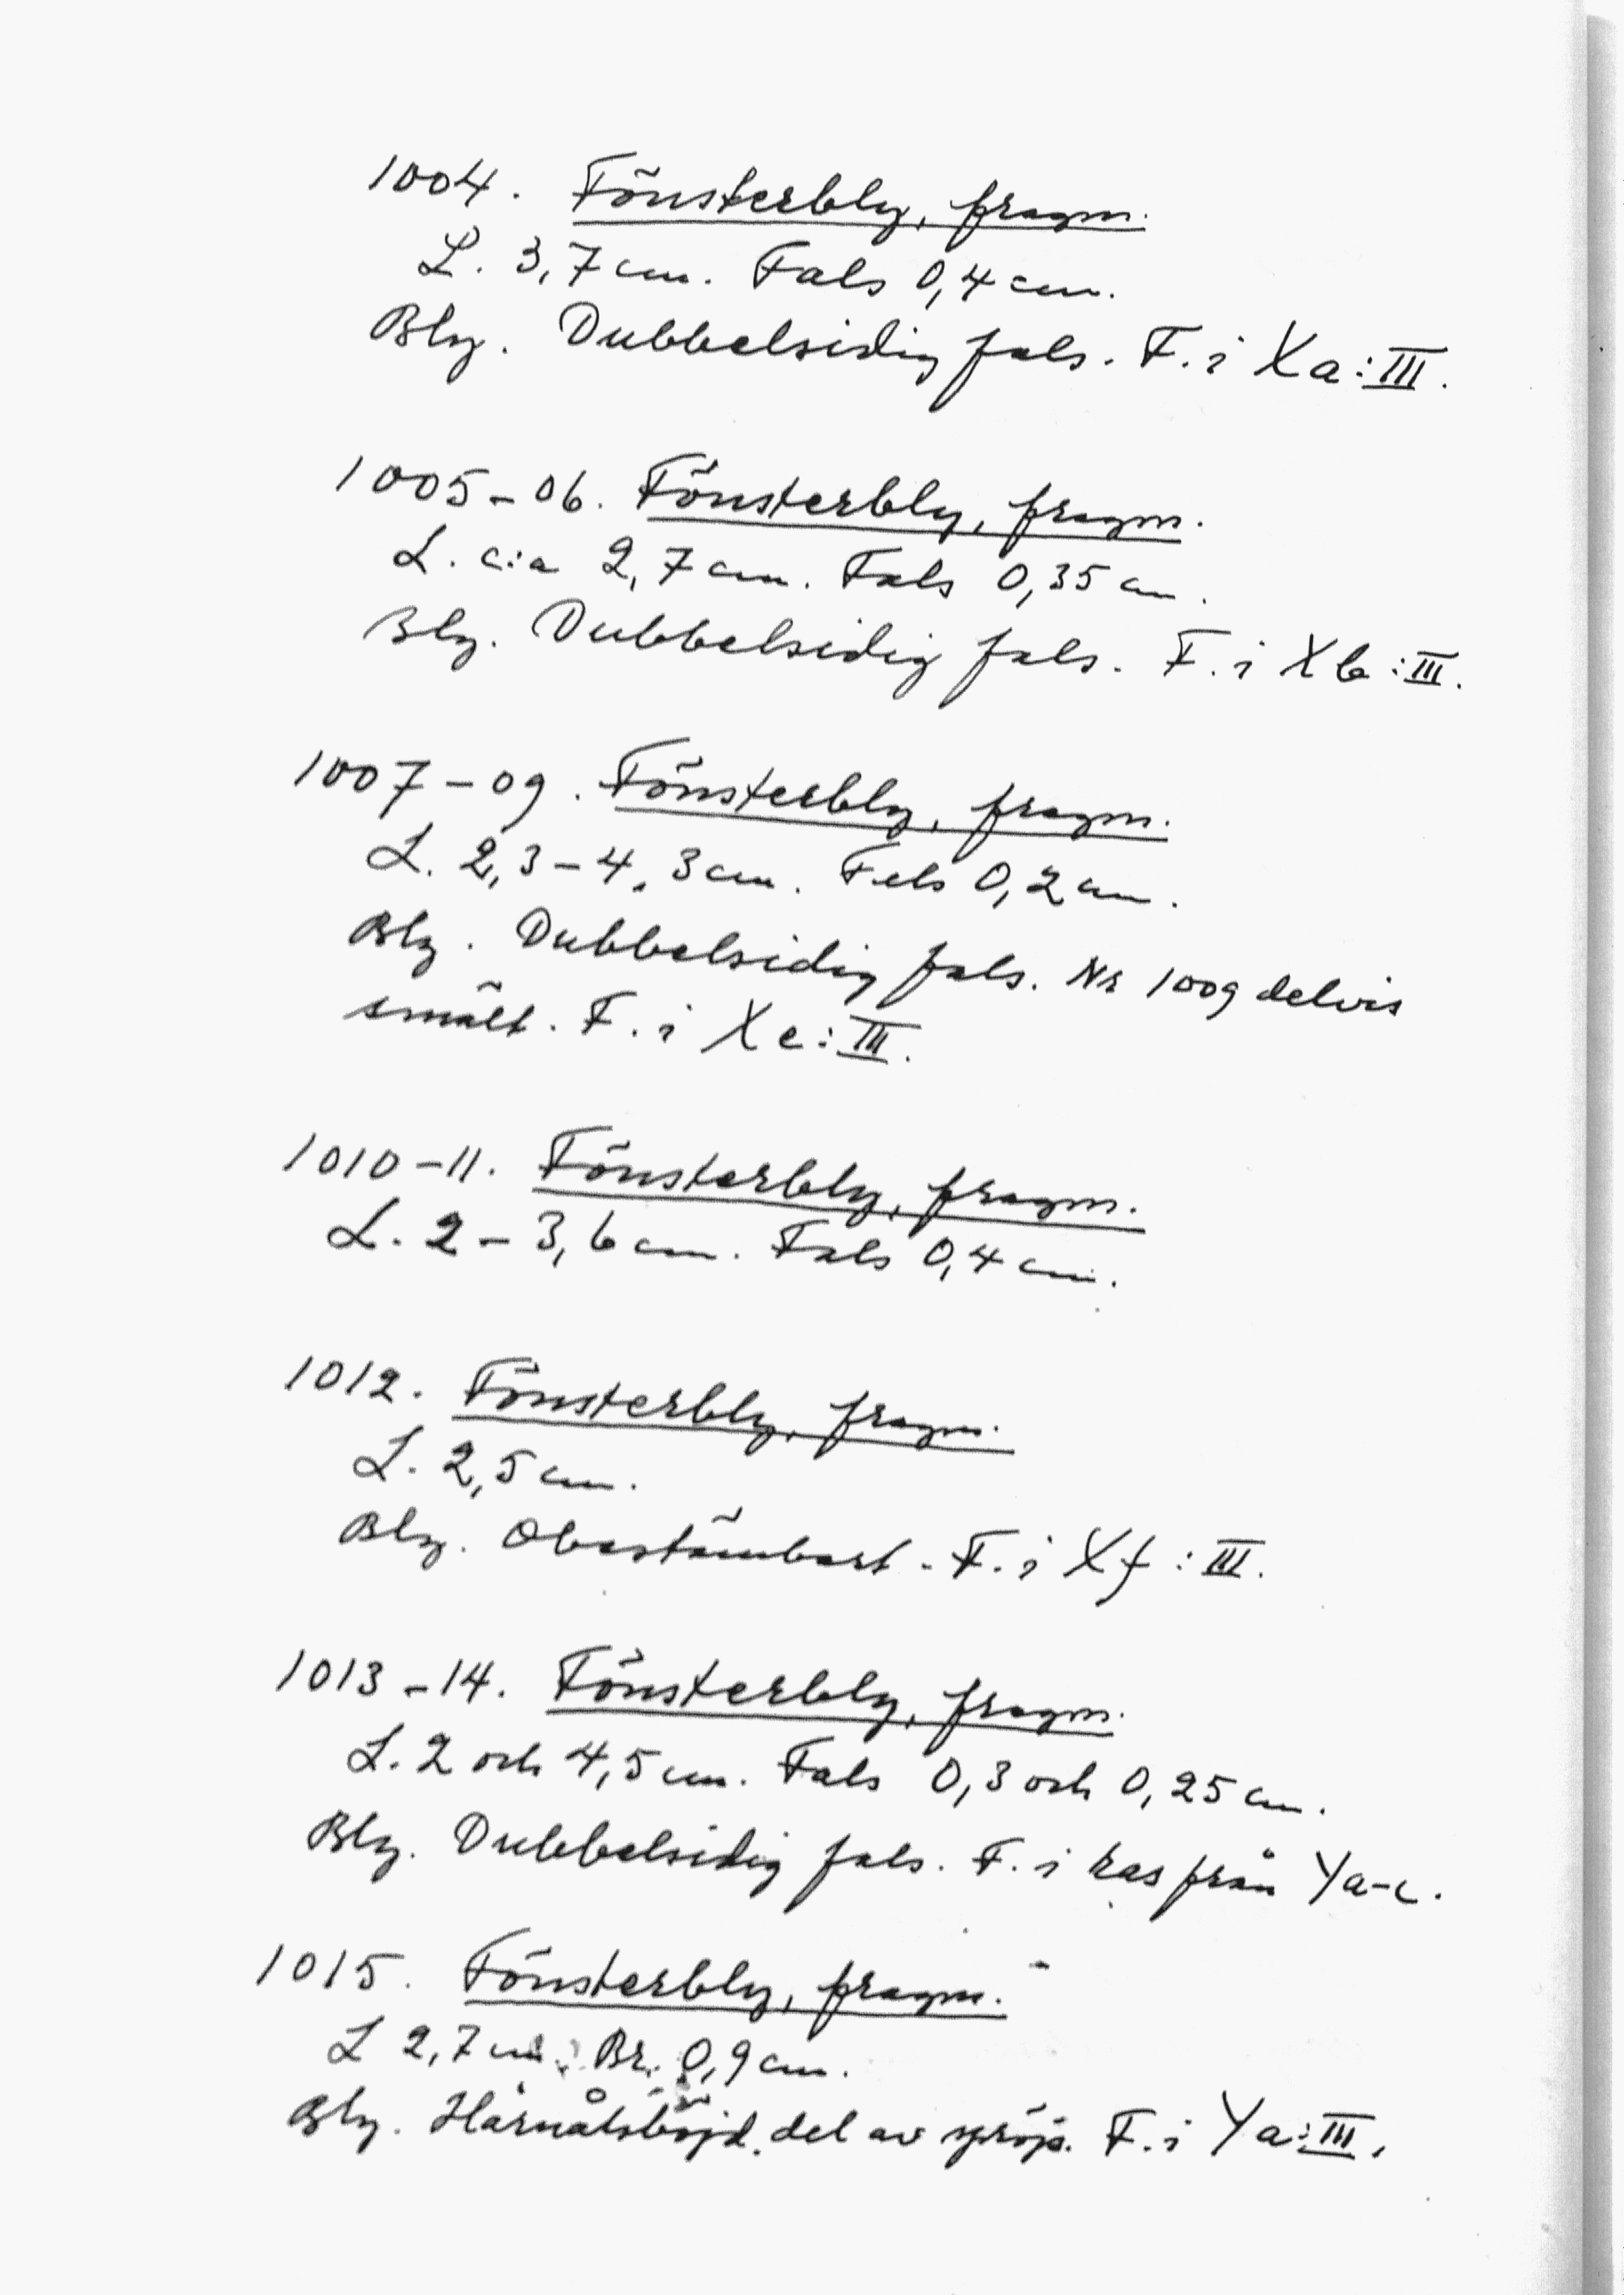 1004. Fönsterbly, fragm.
L. 3,7 cm. Fals 0,4 cm.
Bly. Dubbelsidig fals. F. i Xa:III.
1005-06. Fönsterbly, fragm.
L. c:a 2,7 cm. Fals 0,35 cm.
Bly. Dubbelsidig fals. F. i Xb:III.
1007-09. Fönsterbly, fragm.
L. 2,3-4,3 cm. Fals 0,2 cm.
Bly. Dubbelsidig fals. Nr 1009 delvis
smält. F. i Xe:III.
1010-11. Fönsterbly, fragm.
L. 2-3,6 cm. Fals 0,4 cm.
1012. Fönsterbly, fragm.
L. 2,5 cm.
Bly. Obestämbart. F. i Xf:III.
1013-14. Fönsterbly, fragm.
L. 2 och 4,5 cm. Fals 0,3 och 0,25 cm.
Bly. Dubbelsidig fals. F. i ras från Ya-c.
1015. Fönsterbly, fragm.
L 2,7 cm. Br. 0,9 cm.
Bly. Hårnålsböjd, del av spröjs. F. i Ya:III.